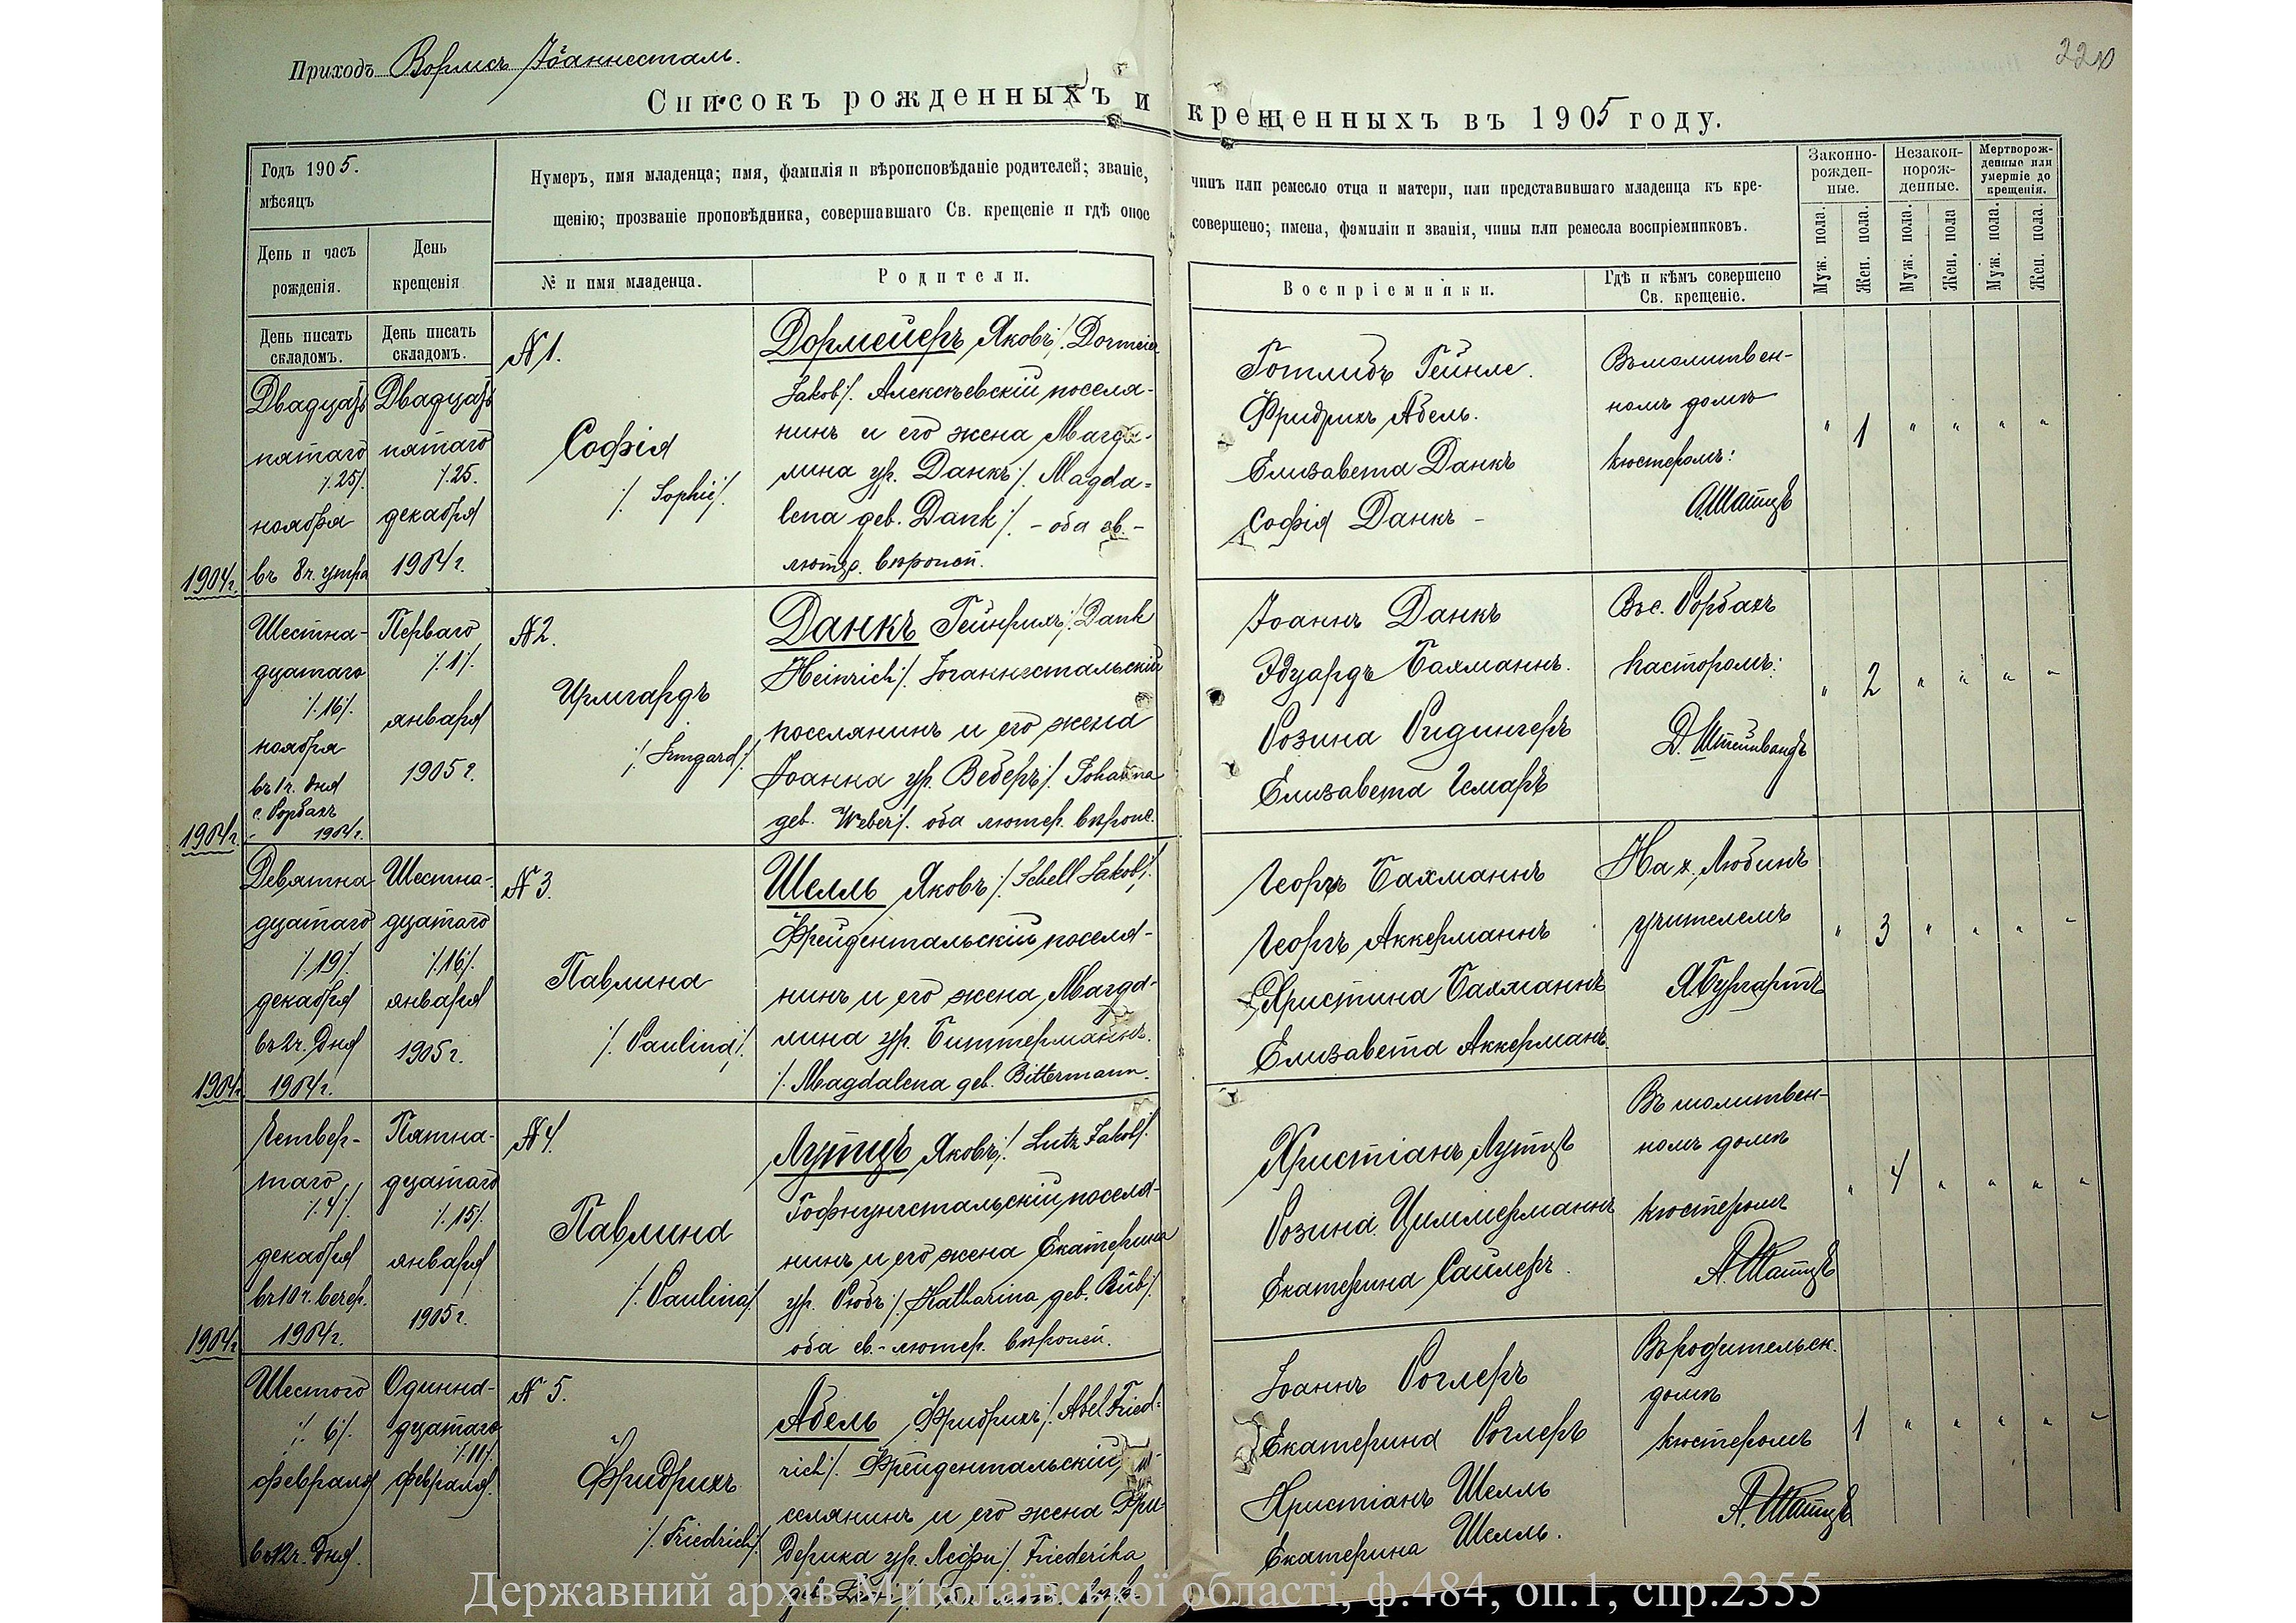 Приходъ Вормсъ Іоаннесталь.
220
Списокъ рожденныхъ и крещенныхъ въ 1905 году.
Годъ 1905.
мѣсяцъ
День и часъ
рожденія.
День
крещенія
Нумеръ, имя младенца; имя, фамилія и вѣроисповѣданіе родителей; званіе, чинъ или ремесло отца и матери, или представившаго младенца къ кре-
щенію; прозваніе проповѣдника, совершавшаго Св. крещеніе и гдѣ оное совершено; имена, фамиліи и званія, чины или ремесла воспріемниковъ.
№ и имя младенца.
Родители.
Воспріемники.
Гдѣ и кѣмъ совершено
Св. крещеніе.
Законно-
рожден-
ные.
Незакон-
норож-
денные.
Мертворож-
денные или
умершіе до
крещенія.
Муж. пола.
Жен. пола.
Муж. пола.
Жен. пола
Муж. пола.
Жен. пола.
День писать
складомъ.
День писать
складомъ.
Двадцать
пятаго
/.25/.
ноября
въ 8 ч. утра
1904 г.
Двадцать
пятаго
/.25.
декабря
1904 г.
№ 1.
Софія
/. Sophie/.
Дормейеръ Яковъ /. Dormeier
Jakob/. Алексѣевскій поселя-
нинъ и его жена Магда-
лина ур. Данкъ /. Magda-
lena geb. Dank /. - оба ев.-
лютер. вѣроисп.
Готлибъ Гейнле.
Фридрихъ Абель.
Елизавета Данкъ
Софія Данкъ -
Въ молитвен-
номъ домѣ
кюстеромъ:
А.Шатцъ
" 1 " " " "
Шестна-
дцатаго
/.16/.
ноября
въ 1 ч. дня
с. Рорбахъ
1904 г.
1904 г.
Перваго
/.1/.
января
1905 г.
№ 2.
Ирмгардъ
/. Irmgard/.
Данкъ Гейнрихъ /. Dank
Heinrich/. Іоганнестальскій
поселянинъ и его жена
Іоанна ур. Веберъ /. Johanna
geb. Weber/. оба лютер. вѣроис.
Іоаннъ Данкъ
Эдуардъ Бахманнъ.
Розина Ридингеръ
Елизавета
Въ с. Рорбахъ
пасторомъ:
Д. Штейнвандъ
" 2 " " " "
Девятна-
дцатаго
/.19/.
декабря
въ 2 ч. дня
1904 г.
1904 г.
Шестна-
дцатаго
/.16/.
января
1905 г.
№ 3.
Павлина
/. Paulina/.
Шелль Яковъ /. Schell Jakob/.
Фрейдентальскій поселя-
нинъ и его жена Магда-
лина ур. Биттерманнъ.
/. Magdalena geb. Bittermann.
Георгъ Бахманнъ
Георгъ Аккерманнъ
Христина Бахманнъ
Елизавета Аккерманъ.
На х. Любинъ
учителемъ
Я.Бургартъ
" 3 " " " "
Четвер-
таго
/.4/.
декабря
въ 10 ч. вечер.
1904 г.
1904 г.
Пятна-
дцатаго
/.15/.
января
1905 г.
№ 4.
Павлина
/. Paulina/.
Лутцъ Яковъ /. Lutz Jakob/.
Гофнунгстальскій поселя-
нинъ и его жена Екатерина
ур. Рюбъ /. Katharina geb. Rüb/.
оба ев.-лютер. вѣроисп.
Христіанъ Лутцъ
Розина Циммерманнъ
Екатерина Сайлеръ.
Въ молитвен-
номъ домѣ
кюстеромъ
А.Шатцъ
" 4 " " " "
Шестого
/. 6/.
февраля
въ 12 ч. дня.
Одинна-
дцатаго
/.11/.
февраля.
№ 5.
Фридрихъ
/. Friedrich/.
Абель Фридрихъ /. Abel Fried-
rich/. Фрейдентальскій по-
селянинъ и его жена Фри-
дерика ур. /. Friederika
geb.
Іоаннъ Роглеръ
Екатерина Роглеръ
Христіанъ Шелль
Екатерина Шелль.
Въ родительск.
домѣ
кюстеромъ
А.Шатцъ
1 " " " " "
Державний архів Миколаївської області, ф.484, оп.1, спр.2355